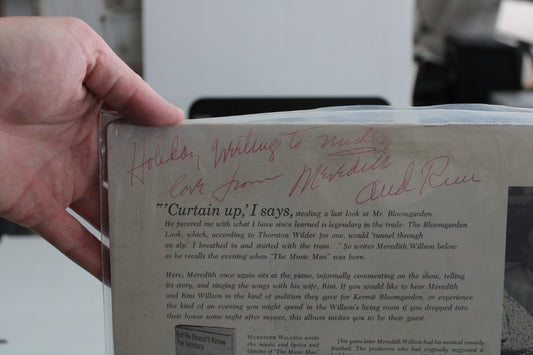 Holiday Greetings to
love from Meredith
and Rini
"'Curtain up,' I says, stealing a last look at Mr. Bloomgarden.
He favored me with what I have since learned is legendary in the trade. The Bloomgarden
Look, which, according to Thornton Wilder for one, would 'tunnel through
an alp.' I breathed in and started with the train..." So writes Meredith Willson below
as he recalls the evening when "The Music Man" was born.
Here, Meredith once again sits at the piano, informally commenting on the show, telling
its story, and singing the songs with his wife, Rini. If you would like to hear Meredith
and Rini Willson in the kind of audition they gave for Kermit Bloomgarden, or experience
the kind of an evening you might spend in the Willson's living room if you dropped into
their house some night after supper, this album invites you to be their guest.
But He Doesn't Know
The Territory
MEREDITH WILLSON wrote
the music and lyrics and
libretto of "The Music Man"
(Six years later Meredith Willson had his musical comedy
finished. The producers who had originally suggested it